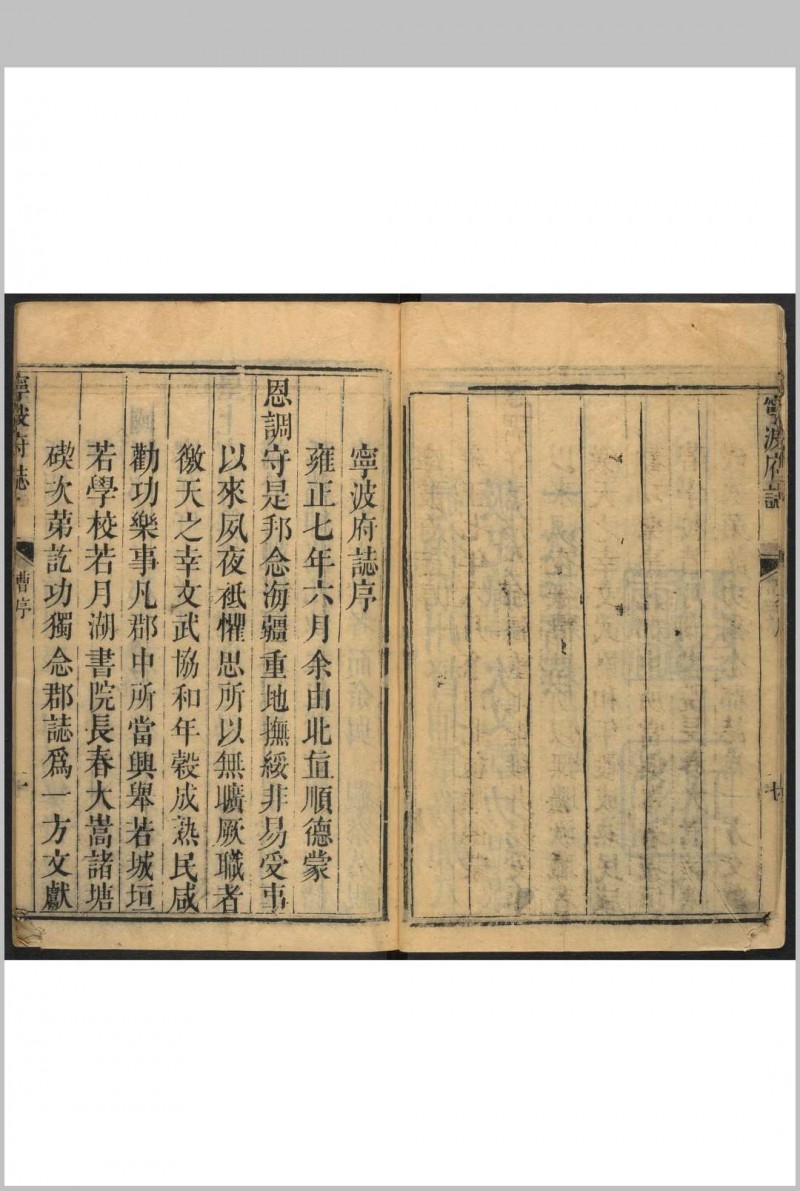 寧波府誌
七
寧波府誌序
雍正七年六月余由北直順德蒙
恩調守是邦念海疆重地撫綏非易受事
以來夙夜祗懼思所以無曠厥職者
徼天之幸文武協和年穀成熟民咸
勸功樂事凡郡中所當興舉若城垣
若學校若月湖書院長春大嵩諸塘
碶次第訖功獨念郡誌爲一方文獻
寧波府誌
曹序
一